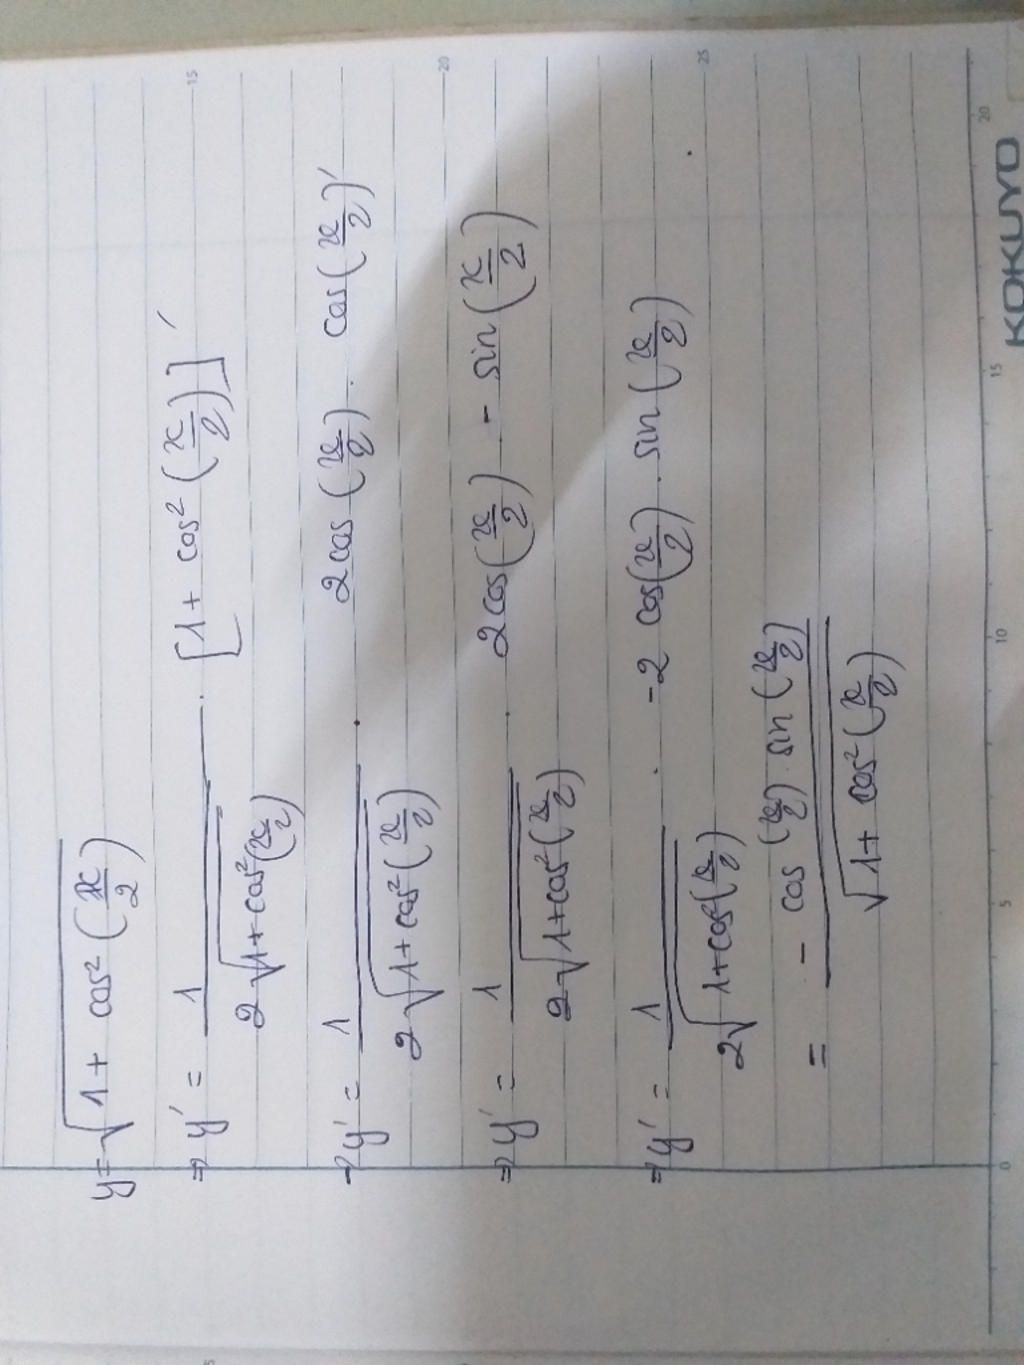 y = √(1 + cos² (x/2))
⇒ y' = 1/(2√(1 + cos²(x/2))) . [1 + cos² (x/2)]'
⇒ y' = 1/(2√(1 + cos²(x/2))) . 2 cos (x/2) . cos (x/2)'
⇒ y' = 1/(2√(1 + cos²(x/2))) . 2 cos (x/2) - sin (x/2)
⇒ y' = 1/(2√(1 + cos²(x/2))) . -2 cos (x/2) . sin (x/2) .
= - cos (x/2) . sin (x/2) / √(1 + cos² (x/2))
15 20 25
0 5 10 15 20
KOKUYO